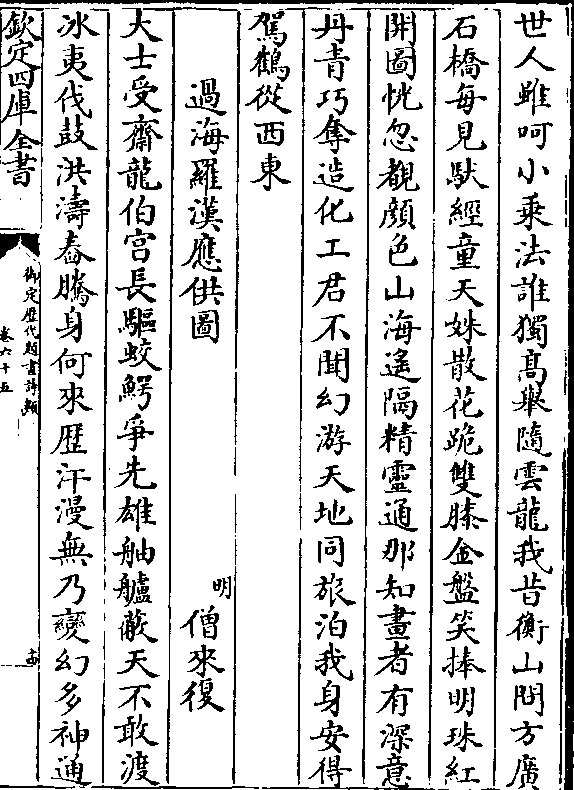 世人雖呵小乘法誰獨髙舉隨雲龍我昔衡山問方廣
石橋每見馱經童天姝散花跪雙膝金盤笑捧明珠紅
開圖恍忽覩顔色山海遙隔精靈通那知畫者有深意
丹青巧奪造化工君不聞幻游天地同旅泊我身安得
駕鶴從西東
過海羅漢應供圖
明 僧來復
大士受齋龍伯宫長驅蛟鰐爭先雄舳艫蔽天不敢渡
冰夷伐鼓洪濤舂騰身何來歴汗漫無乃變幻多神通
欽定四庫全書
御定歴代題畫詩類
卷六十五